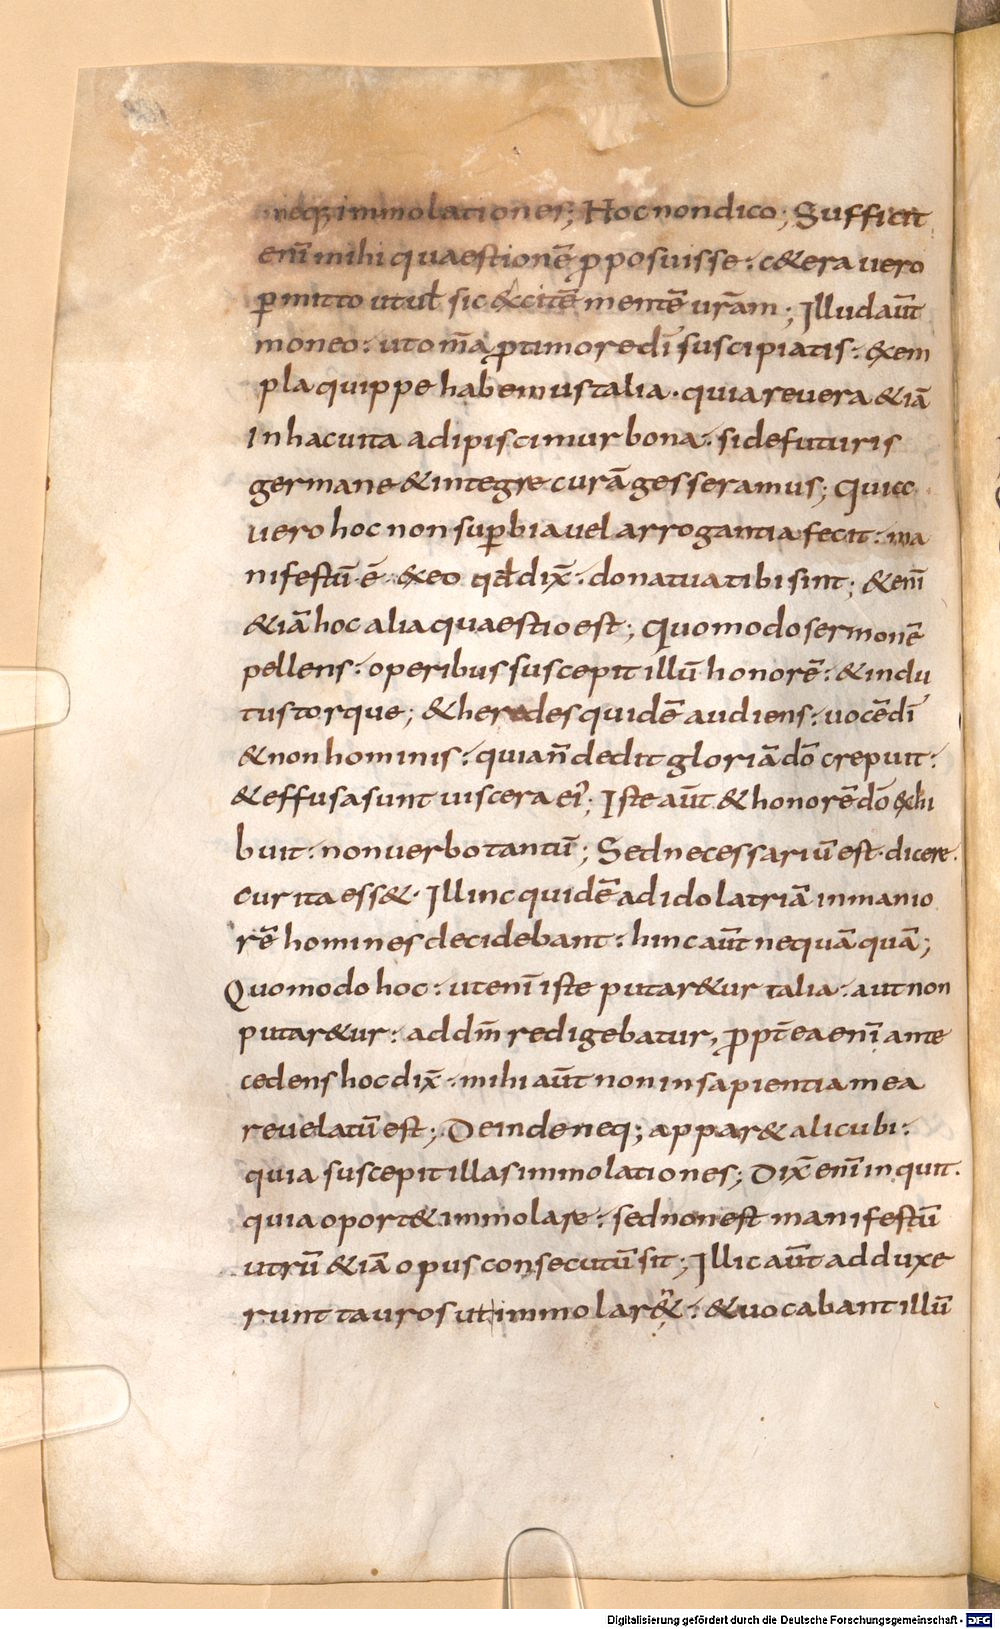 neq; immolationes; Hoc non dico; Sufficit
enī mihi quaestionē ꝓposuisse · c&era uero
ꝑmitto utuł sic excitē mentē urām; Illud aūt
moneo · ut om̄a ꝓ timore dī suscipiatis · exem
pla quippe habemus talia · quia reuera & iā
In hac uita adipiscimur bona · si de futuris
germane & integre curā gesseramus; Quicc
uero hoc non suꝑbia uel arrogantia fecit · ma
nifestū ē · ex eo qđ dix̄ · dona tua tibi sint; & enī
& iā hoc alia quaestio est; Quomodo sermonē
pellens · operibus suscepit illū honorē · & indu
tus torque; & heredes quidē audiens · uocē dī
& non hominis · quia n̄ dedit gloriā dō crepuit ·
& effusa sunt uiscera ei'; Iste aūt & honorē dō exhi
buit · non uerbo tantū; Sed necessariū est · dicere ·
cur ita ess& · Illinc quidē ad idolatriā inmanio
rē homines decidebant · hinc aūt nequāquā;
Quomodo hoc · ut enī iste putar&ur talia · aut non
putar&ur · ad dm̄ redigebatur, ꝓpt̄ ea enī ante
cedens hoc dix̄ · mihi aūt non in sapientia mea
reuelatū est; Deinde neq; appar& alicubi ·
quia suscepit illas immolationes; Dix̄ enī inquit ·
quia oport& immolare · sed non est manifestū
utrū & iā opus consecutū sit; Illic aūt adduxe
runt tauros ut immolar& · & uocabant illū
Digitalisierung gefördert durch die Deutsche Forschungsgemeinschaft - DFG